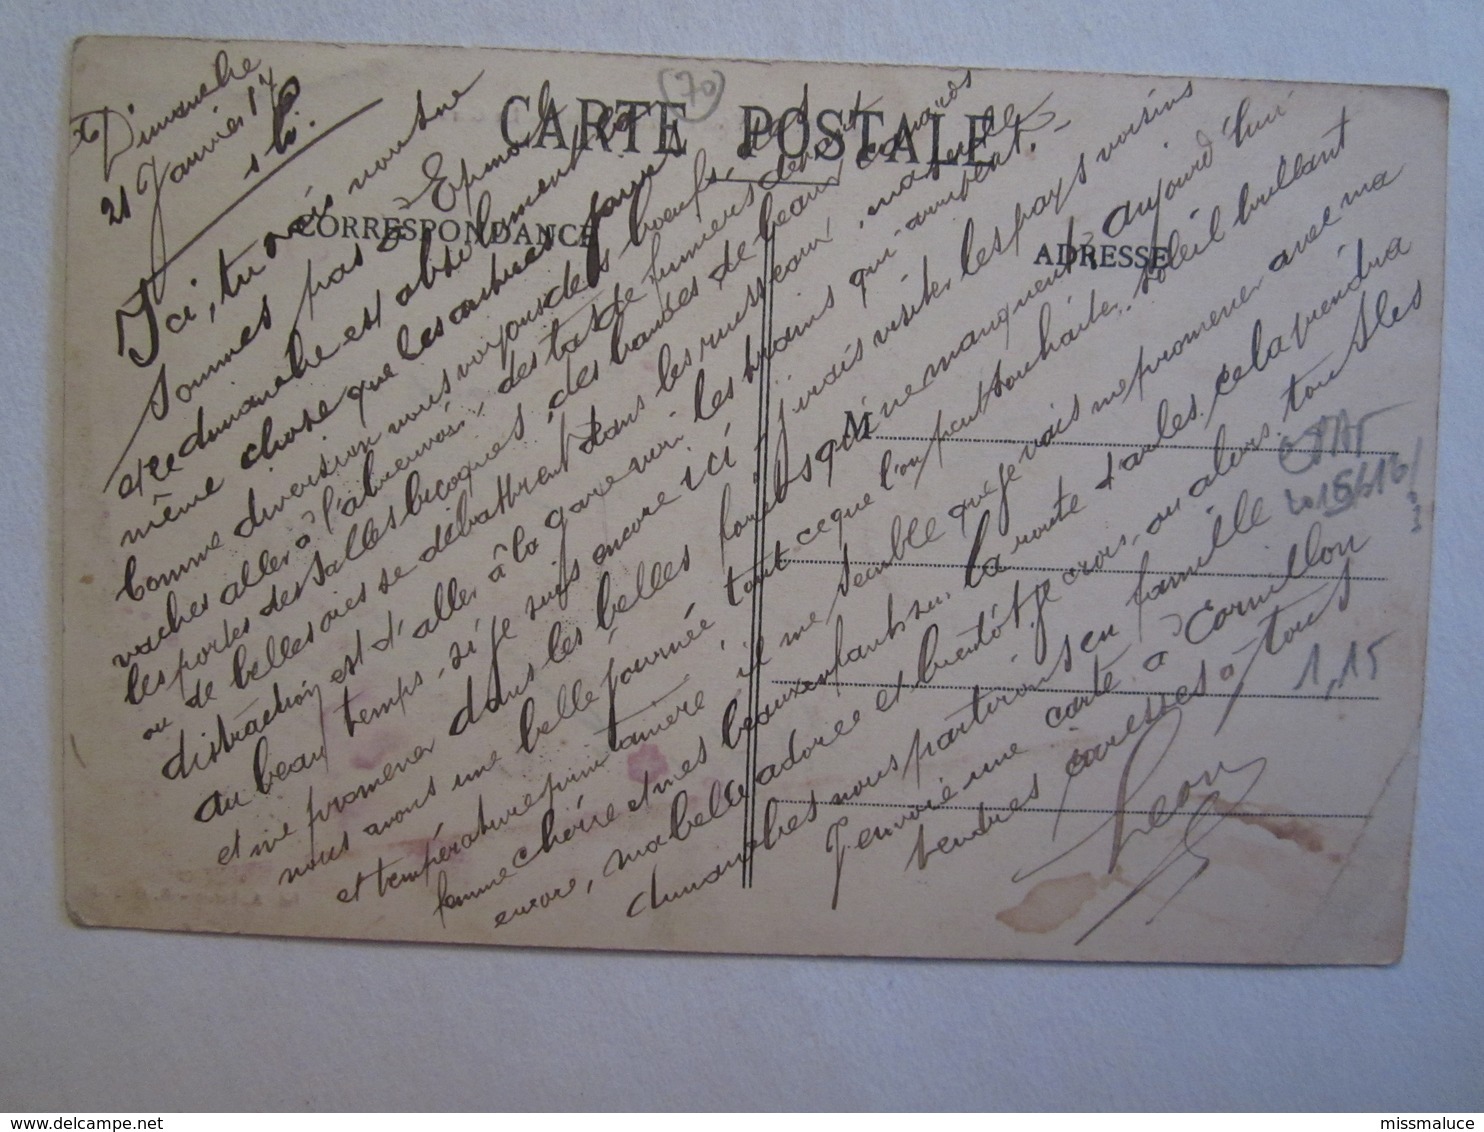 (70)
CARTE POSTALE
CORRESPONDANCE
ADRESSE
M
Dimanche
21 Janvier 17
Ici, tu vois nous ne
sommes pas à Epinal
et ce dimanche est absolument la
même chose que les autres jours
Comme diversion nous voyons des boeufs et
vaches aller à l'abreuvoir, des tas de fumiers devant
les portes des salles bicoques, des bandes de beaux canards
ou de belles oies se débattrent dans les ruisseaux, ma seule
distraction est d'aller à la gare voir les trains qui arrivent.
au beau temps, si je suis encore ici j'irais visiter les pays voisins
et me promener dans les belles forêts qui ne manquent, aujourd'hui
nous avons une belle journée tout ce que l'on peut souhaiter, soleil brillant
et température printanière, il me semble que je vais me promener avec ma
femme chérie et mes beaux enfants sur la route d'Arles, cela prendra
encore, ma belle adorée et bientôt je crois, ou alors tous les
dimanches nous partirons en famille
J'envoie une carte à Cornillon
tendres caresses à tous
Léon
2015616
1,15
missmaluce